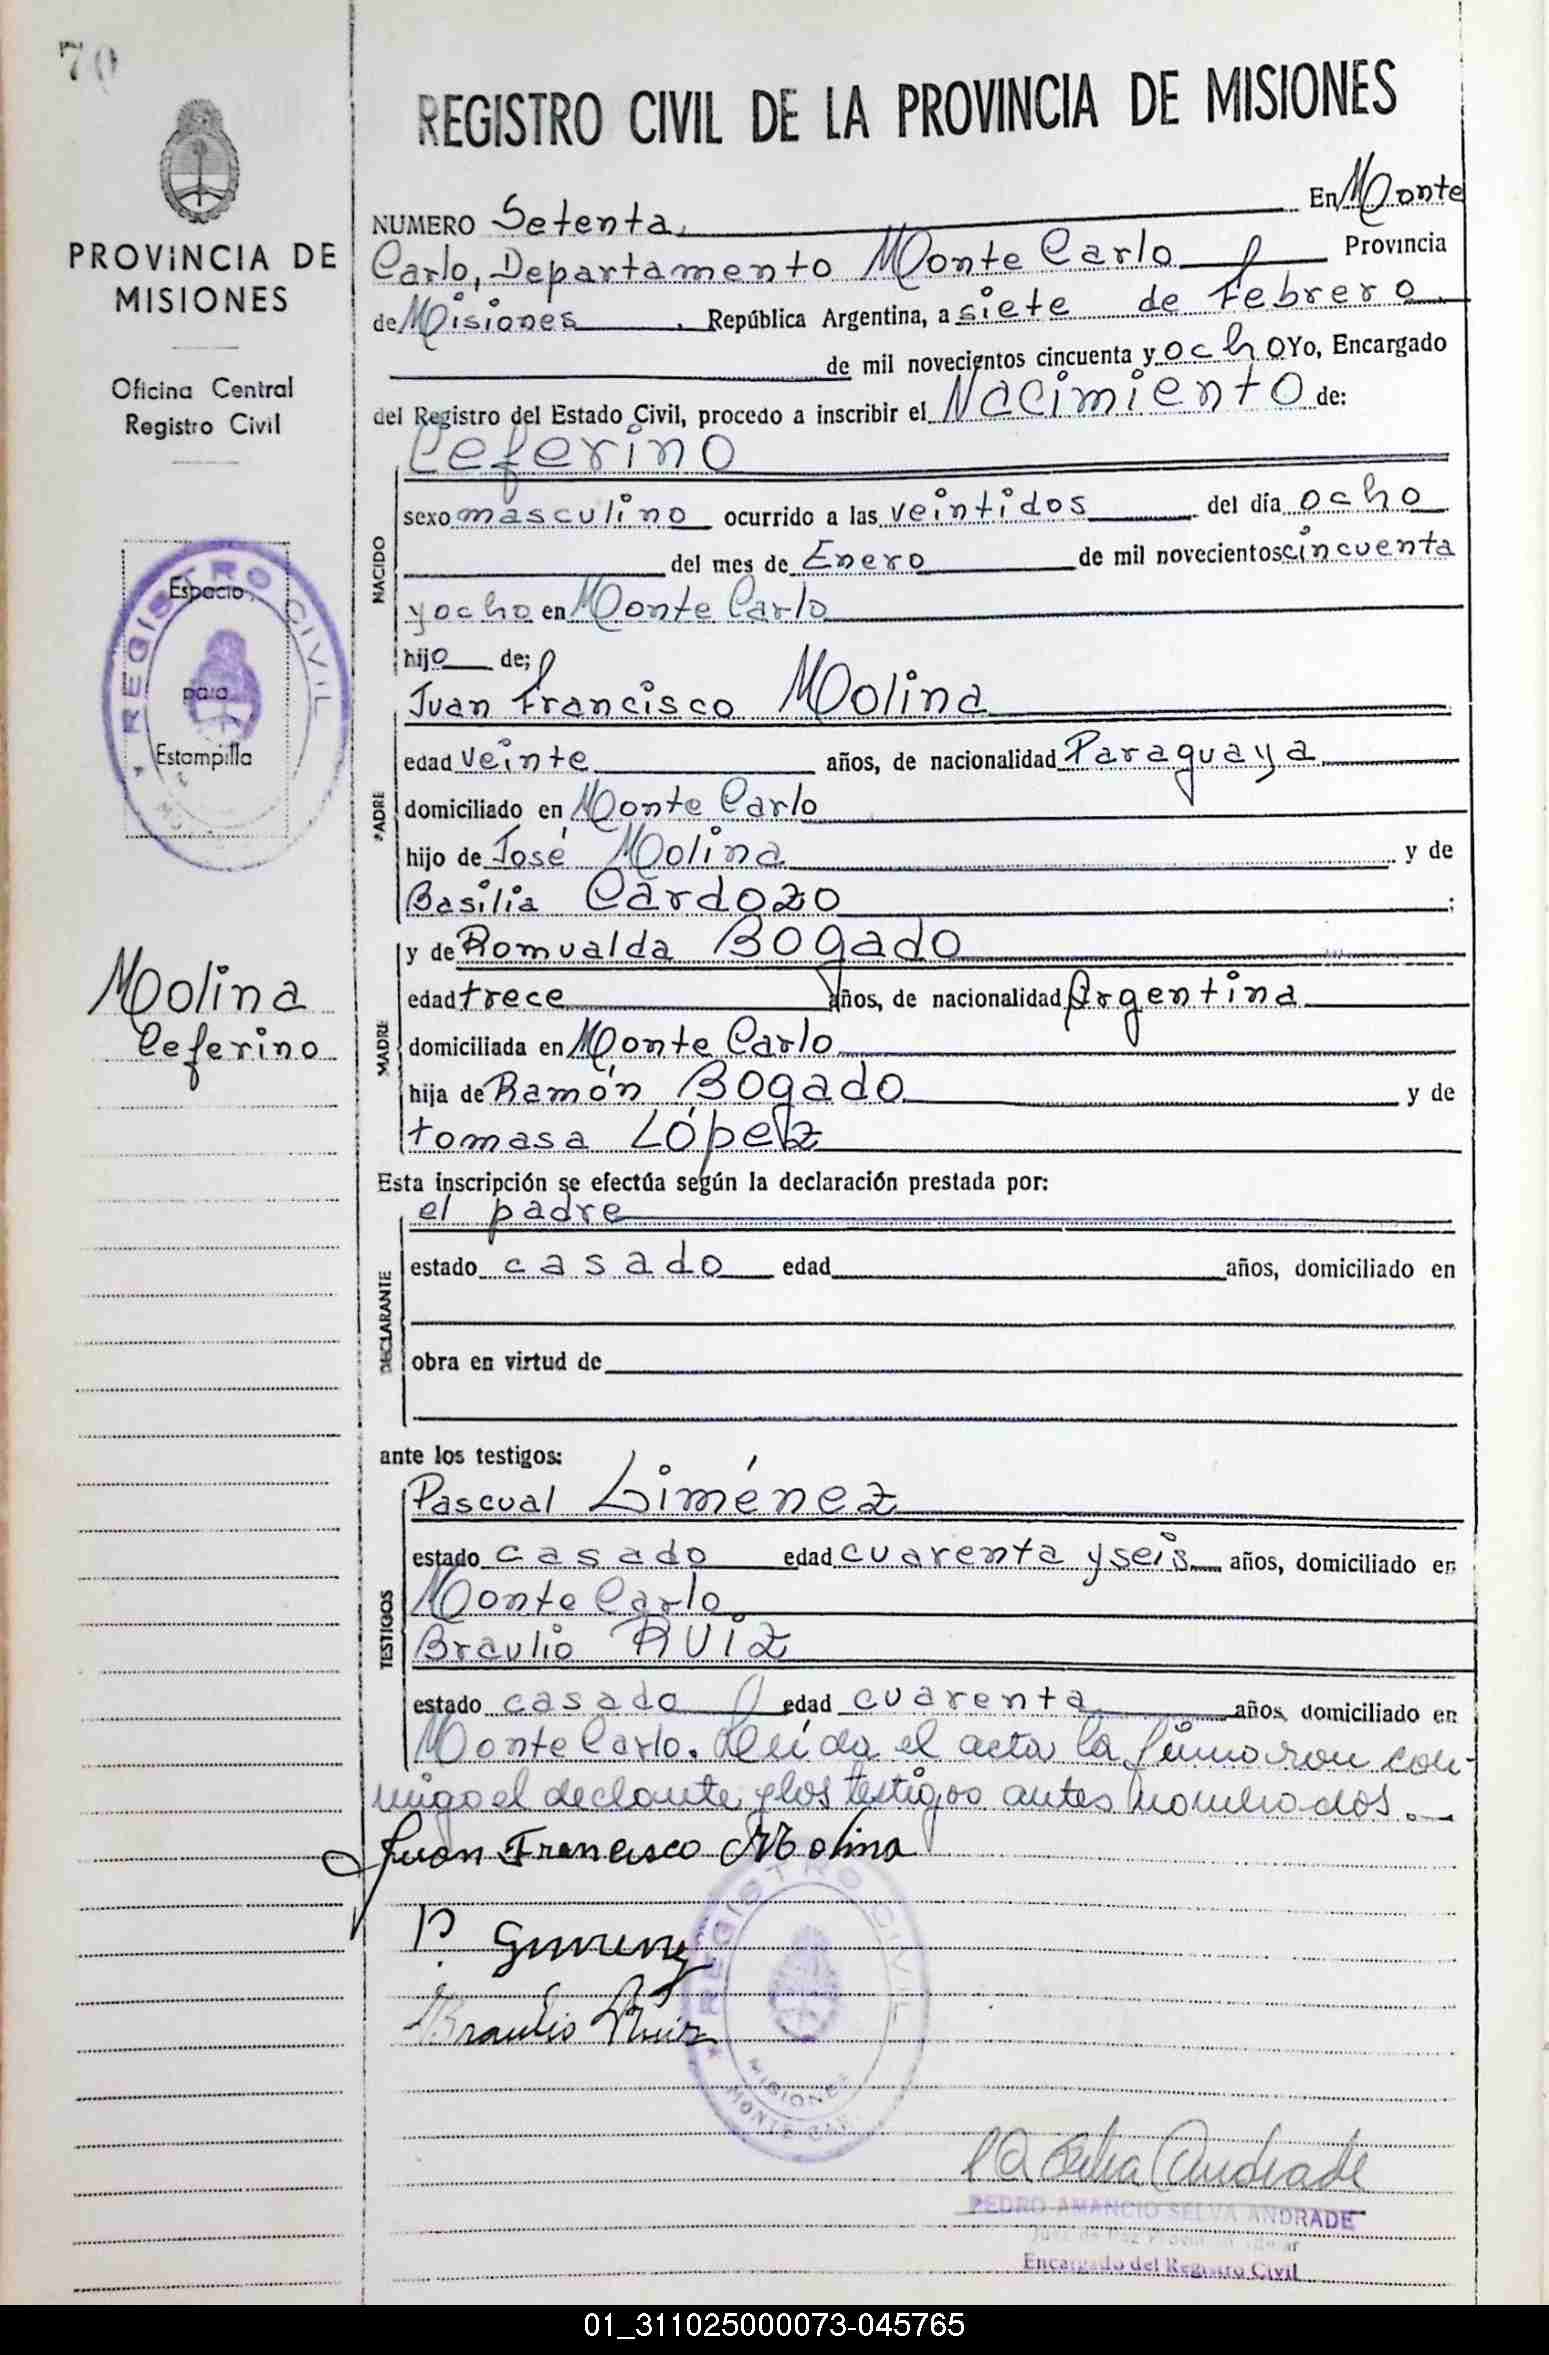 70
PROVINCIA DE
MISIONES
Oficina Central
Registro Civil
REGISTRO CIVIL
Espacio
para
Estampilla
Molina
Ceferino
REGISTRO CIVIL DE LA PROVINCIA DE MISIONES
NUMERO Setenta En Monte
Carlo, Departamento Monte Carlo Provincia
de Misiones República Argentina, a siete de Febrero
de mil novecientos cincuenta y ocho Yo, Encargado
del Registro del Estado Civil, procedo a inscribir el Nacimiento de:
Ceferino
NACIDO
sexo masculino ocurrido a las veintidos del día ocho
del mes de Enero de mil novecientos cincuenta
y ocho en Monte Carlo
hijo de;
PADRE
Juan Francisco Molina
edad veinte años, de nacionalidad Paraguaya
domiciliado en Monte Carlo
hijo de José Molina y de
Basilia Cardozo ;
MADRE
y de Romualda Bogado
edad trece años, de nacionalidad Argentina
domiciliada en Monte Carlo
hija de Ramón Bogado y de
tomasa López
Esta inscripción se efectúa según la declaración prestada por:
DECLARANTE
el padre
estado casado edad años, domiciliado en
obra en virtud de
ante los testigos:
TESTIGOS
Pascual Liménez
estado casado edad cuarenta y seis años, domiciliado en
Monte Carlo
Braulio Ruiz
estado casado edad cuarenta años, domiciliado en
Monte Carlo. Leída el acta la firmaron con-
migo el declarante y los testigos antes nombrados.
Juan Francisco Molina
P. Gimenez
Braulio Ruiz
REGISTRO CIVIL
MISIONES
MONTE CAR
Selva Andrade
PEDRO AMANCIO SELVA ANDRADE
Juez de Paz
Encargado del Registro Civil
01_311025000073-045765